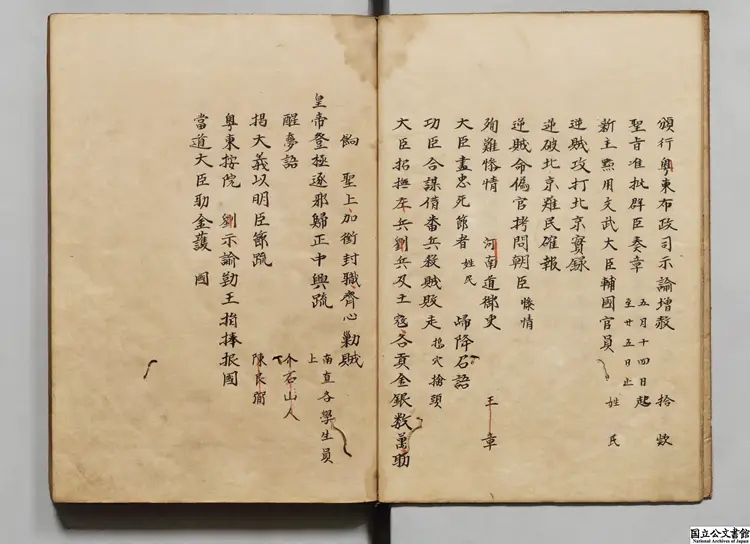 頒行粤東布政司示諭增赦 拾欵
聖旨准批群臣奏章 五月十四日起
至廿五日止
新主㸃用文武大臣輔國官員 姓氏
逆賊攻打北京實録
逆破北京難民確報
逆賊命偽官拷問朝臣 惨情
殉難惨情 河南道御史 王章
大臣盡忠死節者 姓氏 歸降名語
功臣合謀借番兵殺賊敗走 搗穴擒頭
大臣招撫左兵劉兵及土寇各貢金銀数萬助
餉 聖上加銜封職齊心勦賊
皇帝登極逐邪歸正中興疏 南直各學生員
上
醒夢語 介石山人
揭大義以明臣節疏 陳良弼
粤東按院 劉示諭勤王指捧报國
當道大臣助金護 國
国立公文書館
National Archives of Japan